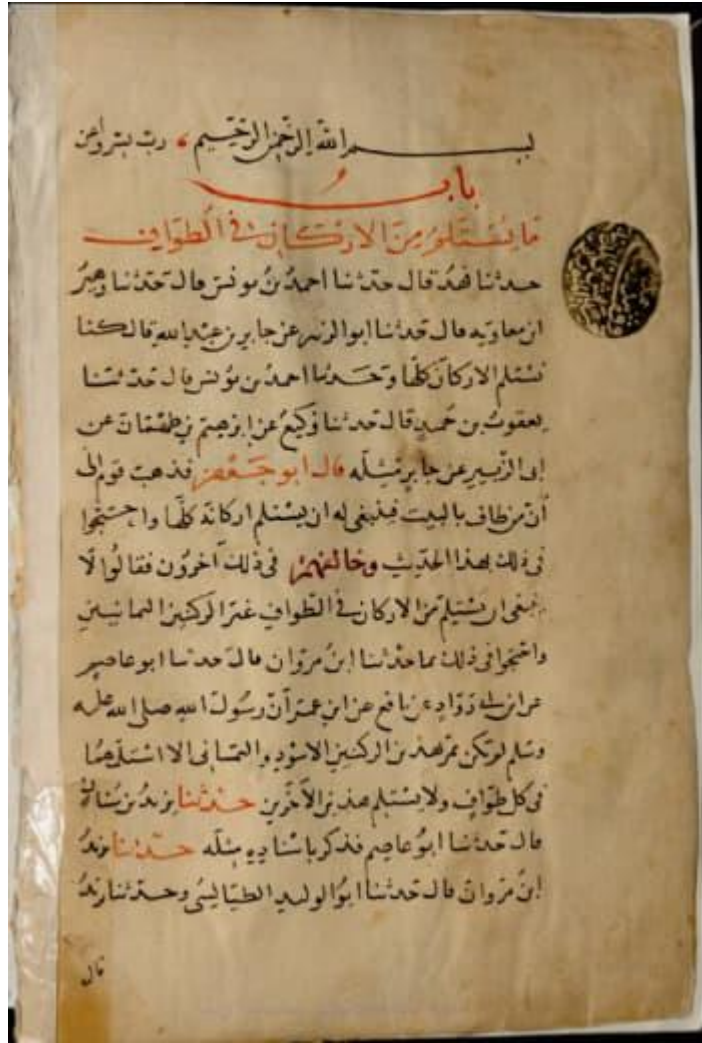 بسم الله الرحمن الرحيم رب يسر واعن
باب
ما يستلم من الاركان في الطواف
حدثنا فهد قال حدثنا احمد بن يونس قال حدثنا زهير
ابن معاويه قال حدثنا ابو الزبير عن جابر بن عبد الله قال كنا
نستلم الاركان كلها وحدثنا احمد بن يونس قال حدثنا
يعقوب بن حميد قال حدثنا وكيع عن ابرهيم بن طهمان عن
ابى الزبير عن جابر مثله قال ابو جعفر فذهب قوم الى
ان من طاف بالبيت فينبغى له ان يستلم اركانه كلها واحتجوا
فى ذلك بهذا الحديث وخالفهم فى ذلك آخرون فقالوا لا
ينبغى ان يستلم من الاركان في الطواف غير الركنين اليمانيين
واحتجوا فى ذلك بما حدثنا ابن مروان قال حدثنا ابو عاصم
عن ابن ابى رواد عن نافع عن ابن عمر ان رسول الله صلى الله عليه
وسلم لم يكن يمر بهذين الركنين الاسود واليمانى الا استلمهما
فى كل طواف ولا يستلم هذين الآخرين حدثنا يزيد بن سنان
قال حدثنا ابو عاصم فذكر باسناده مثله حدثنا يزيد
ابن مروان قال حدثنا ابو الوليد الطيالسى وحدثنا يزيد
قال